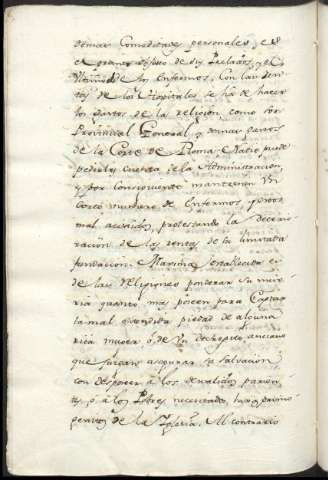 demas Comodidades personales, es
el primer objeto de sus Prelados, y el
de los enfermos. Con las Ren-
tas de los Hospitales se ha de hacer
los gastos de la religion, como son
Provincial General, y demas gastos
de la Corte de Roma, Nadie puede
pedirles cuenta de la Administracion,
y por consiguiente mantienen un
Corto numero de Enfermos, y estos
mal asistidos, protestando la deterio-
racion de las rentas de la limitada
fundacion. Maxima establecida es
de las Religiones ponderar su mise-
ria quanto mas poseen para Captar
la mal entendida piedad de alguna
rica muger, ó de un decrepito anciano
que juzgan asegurar su salvacion
con desposeer á los desvalidos parien-
tes, ó á los Pobres necesitados, hijos primo-
genitos de la Iglesia. Al contrario